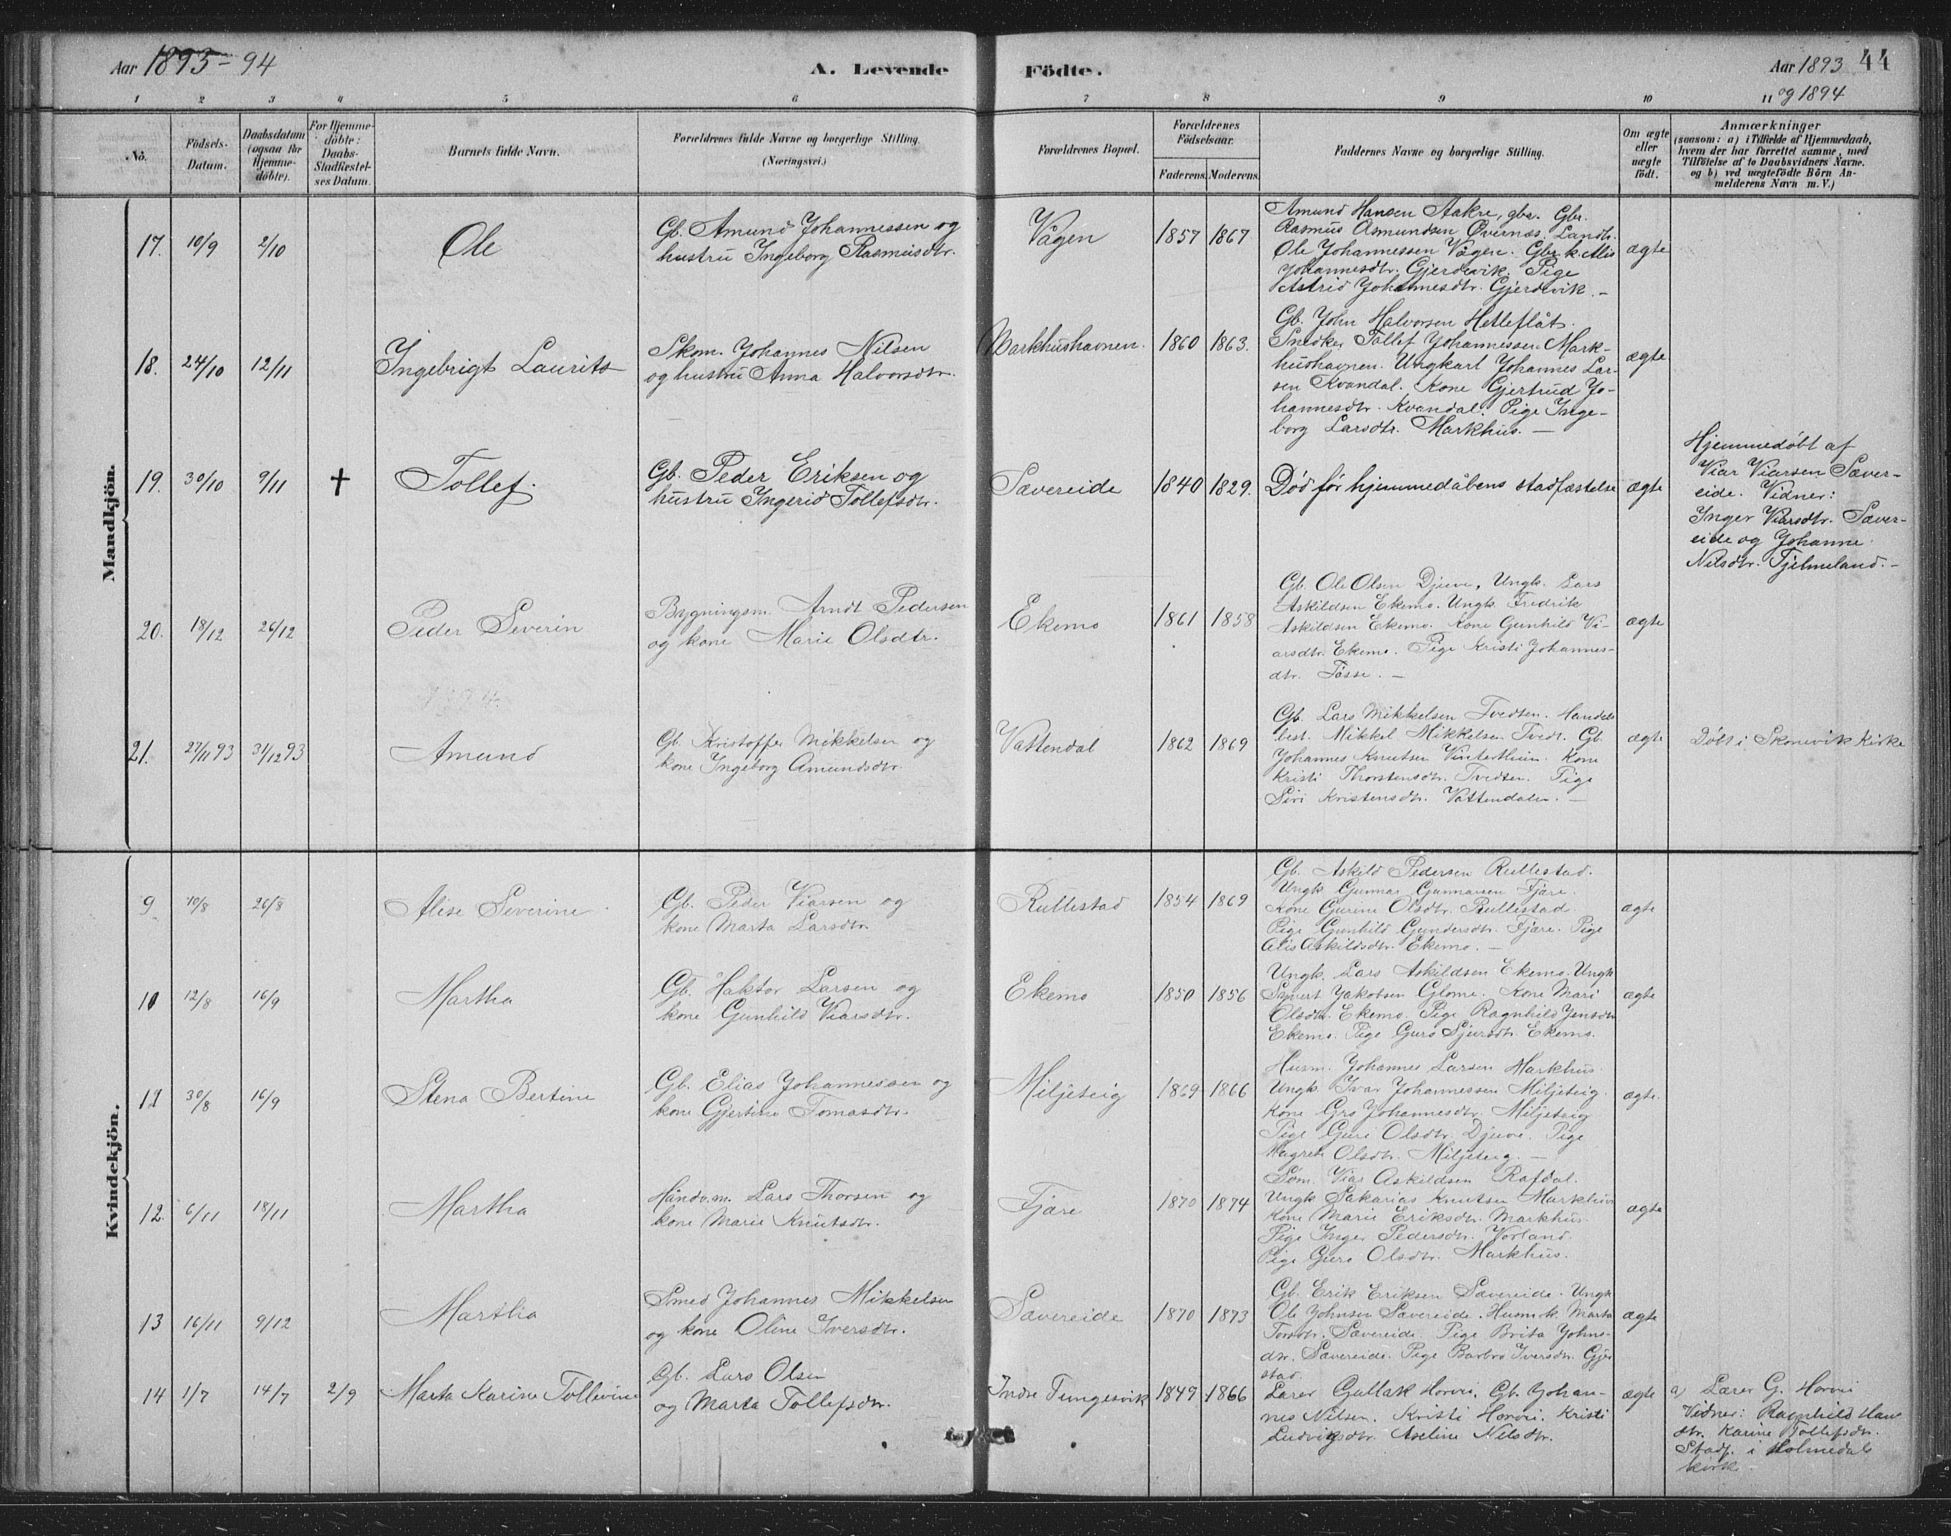 Aar 1893 - 94
A. Levende Födte.
Aar 1893 44
og 1894
1 2 3 4 5 6 7 8 9 10 11
No.
Födsels-
Datum.
Daabsdatum
(ogsaa for
Hjemme-
döbte).
For Hjemme-
döbte:
Daabs-
Stadfæstel-
ses Datum.
Barnets fulde Navn.
Forældrenes fulde Navne og borgerlige Stilling.
(Næringsvei.)
Forældrenes Bopæl.
Forældrenes
Födselsaar.
Faderens. Moderens.
Faddernes Navne og borgerlige Stilling.
Om ægte
eller
uægte
født.
Anmærkninger
(saasom: a) i Tilfælde af Hjemmedaab,
hvem der har forrettet samme, med
Tilföielse af to Daabsvidners Navne.
og b) ved uægtefödte Börn An-
melderens Navn m. V.)
Mandkjön.
17. 10/9 2/10 Ole
Gb. Amund Johannessen og
hustru Ingeborg Rasmusdtr.
Vågen 1857 1867
Amund Hansen Aakre, gbr. Gbr.
Rasmus Asmundsen Øvernæs. Landh.
Ole Johannessen Vågen. Gbr.k. Alis
Johannesdtr. Gjerdevik. Pige
Astrid Johannesdtr. Gjerdevik. -
ægte
18. 24/10 12/11 Ingebrigt Laurits
Skom. Johannes Nilsen
og hustru Anna Halvorsdtr.
Markhushavnen. 1860 1863.
Gb. John Halvorsen Hetleflåt.
Snedker Tollef Johannessen Mark-
hushavnen. Ungkarl Johannes Lar-
sen Kvandal. Kone Gjertrud Jo-
hannesdtr. Kvandal. Pige Inge-
borg Larsdtr. Markhus. -
ægte
19. 30/10 9/11 † Tollef.
Gb. Peder Eriksen og
hustru Ingerid Tollefsdtr.
Sævereide 1840 1829.
Død før hjemmedåbens stadfæstelse
ægte
Hjemmedøbt af
Viar Viarsen Sæver-
eide. Vidner:
Inger Viarsdtr. Sæver-
eide og Johanne
Nilsdtr. Fjelmeland. -
20. 18/12 26/12 Peder Severin
Bygningsm. Arndt Pedersen
og kone Marie Olsdtr.
Ekemo 1861 1858
Gb. Ole Olsen Djuve, Ungk. Lars
Askildsen Ekemo. Ungk. Fredrik
Askildsen Ekemo. Kone Gunhild Vi-
arsdtr. Ekemo. Pige Kristi Johannes-
dtr. Fosse. -
ægte
21. 27/11 93 31/12 93 Amund
Gb. Kristoffer Mikkelsen og
kone Ingeborg Amundsdtr.
Vattendal 1862 1869
Gb. Lars Mikkelsen Tvedten. Handels
best. Mikkel Mikkelsen Tvedt. Gb.
Johannes Knutsen Vinterthun. Kone
Kristi Thorstensdtr. Tvedten. Pige
Siri Kristensdtr. Vattendalen. -
ægte
Døbt i Skonevik Kirke
Kvindekjön.
9 10/8 26/8 Alise Severine
Gb. Peder Viarsen og
kone Marta Larsdtr.
Rullestad 1854 1869
Gb. Askild Pedersen Rullestad.
Ungk Gunnar Gunnarsen Fjære.
Kone Gurine Olsdtr. Rullestad
Pige Gunhild Gundersdtr. Fjære. Pige
Alis Askildsdtr. Ekemo. -
ægte
10 12/8 16/9 Martha
Gb. Haktor Larsen og
kone Gunhild Viarsdtr.
Ekemo 1850 1856
Ungk. Lars Askildsen Ekemo. Ungk
Sjovert Jakobsen Glome. Kone Mari
Olsdtr. Ekemo. Pige Ragnhild Jensdtr
Ekemo. Pige Guro Sjursdtr Ekemo.
ægte
11 30/8 16/9 Stena Bertine
Gb. Elias Johannessen og
kone Gjertine Tomasdtr.
Miljeteig 1869 1866
Husm. Johannes Larsen Markhus.
Ungk. Ivar Johannessen Miljeteig.
Kone Gro Johannesdtr. Miljeteig
Pige Guri Olsdtr. Djuve. Pige
Magrete Olsdtr. Miljeteig. -
ægte.
12. 6/11 18/11 Martha
Håndv.m. Lars Thorsen og
kone Marie Knutsdtr.
Fjære 1870 1874
Søm. Viar Askildsen Rafdal.
Ungk. Sakarias Knutsen Markhus
Kone Marie Eriksdtr. Markhus.
Pige Inger Pedersdtr. Vorland
Pige Guro Olsdtr. Markhus.
ægte
13 16/11 9/12 Martha
Smed Johannes Mikkelsen
og kone Oline Iversdtr.
Sævereide 1870 1873
Gb. Erik Eriksen Sævereide. Ungk
Ole Johnsen Sævereide. Husm.k Marta
Torsdtr. Sævereide. Pige Brita Johns-
dtr. Sævereide. Pige Barbro Iversdtr. Gjer
stad.
ægte
14 1/7 14/7 2/9 Marta Karine Tollevine
Gb. Lars Olsen
og Marta Tollefsdtr.
Indre Tungesvik 1849 1866
Lærer Gullak Horvei. Gb. Johan-
nes Nilsen. Kristi Horvei. Kristi
Ludvigsdtr. Aseline Nilsdtr.
ægte
a) Lærer G. Horvei
Vidner: Ragnhild Hans
dtr. Karine Tollefsdtr.
Stadf. i Holmedals
kirke